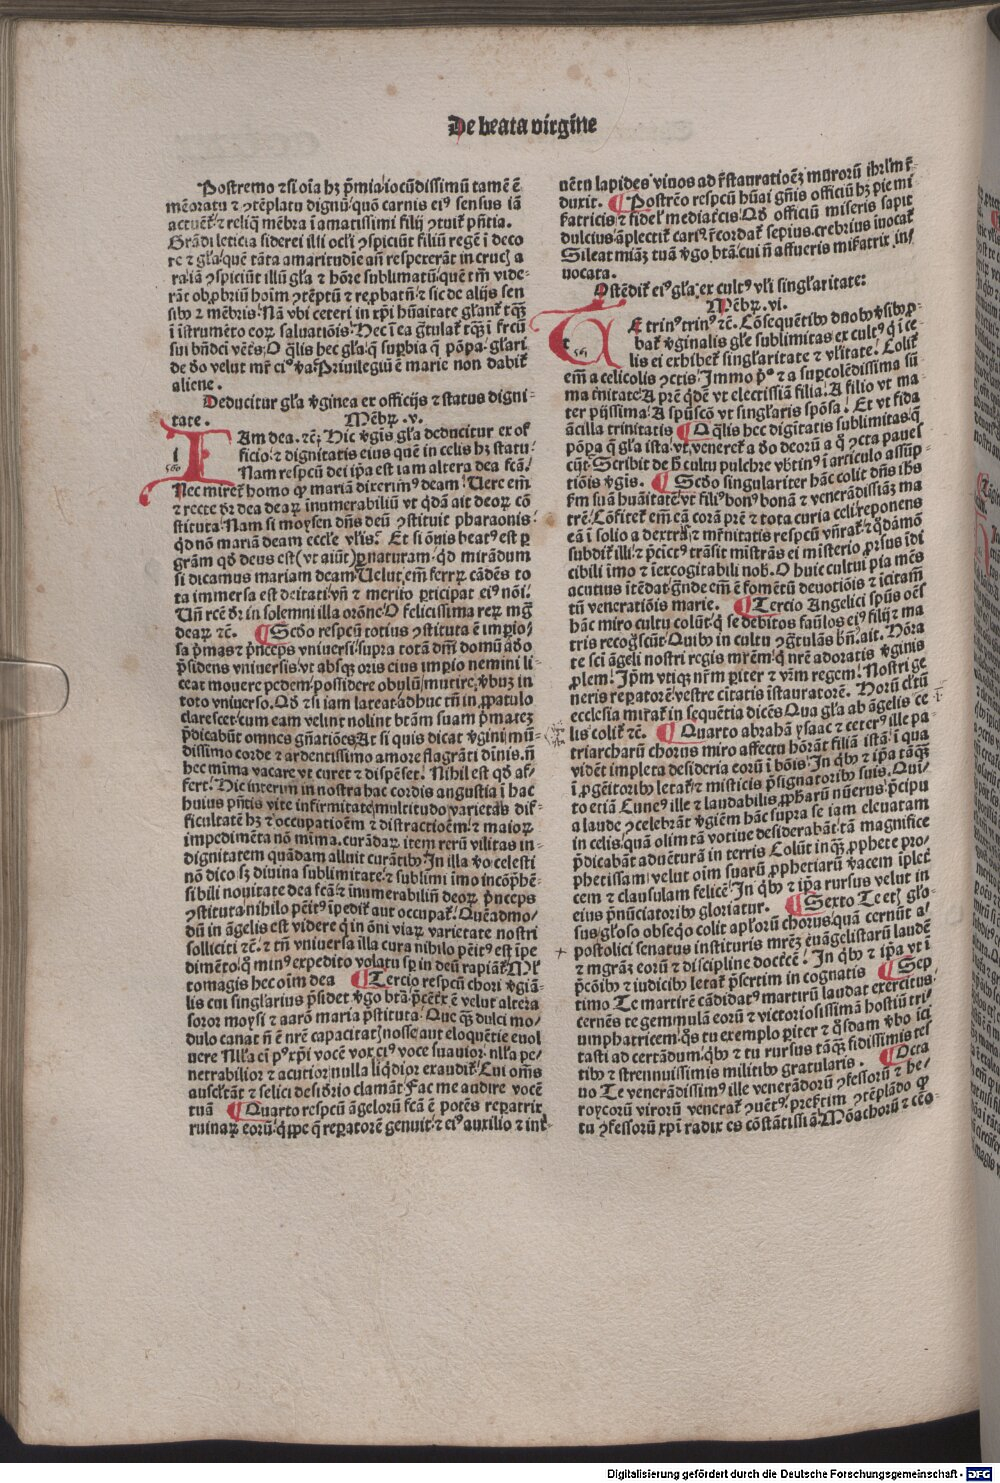 De beata virgine
Postremo ⁊ si oīa hꝫ p̄mia iocūdissimū tamē ē
memoratu ⁊ ꝯtēplatu dignū quō carnis eiꝰ sensus iā
et reliq̄ mēbra ī amatissimi filij
Grādi leticia siderei illi ocl̓i ꝯspiciūt filiū regē ī deco
re ⁊ gl̓a quē tāta amaritudīe an̄ respexerāt in cruc̄ a
ra iā ꝯspiciūt illū gl̓a ⁊ hōre sublimatū quē tm̄ vide
rāt obprbriū hoīm ⁊ sic de alijs sen
sibꝰ ⁊ mēbris Nā vbi ceteri in xp̄i hūaitate
ī īstrumēto saluatiōis Hec ī ea
sui
de deo velut mr̄ ciꝰ Priuilegiū ē marie non dabit̄
aliene.
Deducitur gl̓a v̓ginea ex officijs ⁊ status digni-
tate. Mēbꝝ .v.
IAm dea. ⁊c̄. Hic v̓gīs gl̓a deducitur ex of
ficio ⁊ dignitatis eius quē in celis hꝫ statu
Nam respcū dei ip̄a est iam altera dea
Nec miret̄ homo qꝫ mariā dixerimꝰ deam Uere em̄
⁊ recte dr̄ dea deaꝝ inumerabiliū vt qdā ait deoꝝ cō
stituta Nam si moysen dn̄s deū ꝯstituit pharaonis
qd non mariā deam eccl̓ie vl̓is. Et si oīnis beatꝰ est p
grām qd deus est (vt aiūt) p naturam qd mirādum
si dicamus mariam deam Uelut em̄ ferrꝝ cādēs to
ta immersa est deitati vn̄ ⁊ merito pticipat eiꝰ nōi
Un̄ rc̄e dr̄ in solemni illa orōne O felicissima reꝝ mg̃
deaꝝ ⁊c̄. Scd̓o respcū totius ꝯstituta ē imprio
sa p̄mas ⁊ p̄nceps vniuersi supra totā dn̄i domū a deo
p̄sidens vniuersis vt absqꝫ oris eius imprio nemini li
ceat mouere pedem possidere obulū mutire v̓buꝫ in
toto vniuerso. Qd ⁊ si iam lateat adhuc tn̄ in ppatulo
clarescet cum eam velint nolint btām suam p̄mateꝫ
p̄dicabūt omnes gn̄atiōes At si quis dicat v̓gini mū
dissimo corde ⁊ ardentissimo amore flagrāti dīnis n̄
hec mīma vacare vt curet ⁊ dispēset. Nihil est qd af
fert. Hic interim in nostra hac cordis angustia ī hac
huius pn̄tis vite infirmitate multitudo varietas dif
ficultatē hꝫ ⁊ occupatioēm ⁊ distractioēm ⁊ maioꝝ
impedimēta nō mīma. curādaꝝ item rerū vilitas in
dignitatem quādam alluit curātibꝰ In illa v̓o celesti
nō dico sꝫ diuina sublimitate ⁊ sublimi īmo incōp̄hē
sibili nouitate dea fcā ⁊ inumerabiliū deoꝝ p̄nceps
ꝯstituta nihilo pēitꝰ īpedit̄ aut occupat̄. Quēadmo
dū in āgelis est videre q̄ in ōni viaꝝ varietate nostri
solliciti ⁊c̄. ⁊ tn̄ vniuersa illa cura nihilo pēitꝰ est īpe
dimēto q̄ minꝰ expedito volatu sp̄ in deū rapiāt̄ Ml̓
tomagis hec oīm dea Tercio respcū chori v̓gīa
lis cui singlarius p̄sidet v̓go btā ē velut altera
soror moysi ⁊ aarō maria p̄stituta Que qꝫ dulci mo
dulo canat n̄ ē nrē capacitat̄ nosse aut eloquētie euol
uere Nll̓a ei pꝰ xp̄i vocē vox eiꝰ voce suauior nll̓a pe
netrabilior ⁊ acutior nulla liqdior exaudit̄ Cui om̄s
auscl̓tāt ⁊ felici desiderio clamāt Fac me audire vocē
tuā Quarto respcū āgelorū fcā ē potēs repatrix
ruinaꝝ eorū qppe q̄ repatorē genuit ⁊ eiꝰ auxilio ⁊ int̄
uētu lapides viuos ad r̄stauratioēꝫ murorū ihrl̓m r̄
duxit. Postrēo respcū hūai gn̄is officiū hꝫ pie mi
fatricis ⁊ fidel̓ mediat̄cis Qd officiū miseris sapit
dulcius āplectit̄ cariꝰ r̄cordat̄ sepius crebrius inocat̄
Sileat miāꝫ tuā v̓go btā cui n̄ affueris mīfatrix in
uocata.
Ostēdit̄ eiꝰ gl̓a ex cultꝰ vl̓i singl̓aritate:
Mēbꝝ .vi.
TE trinꝰ trinꝰ ⁊c̄. Cōseq̄uētibꝰ duobꝰ v̓sibꝰ p
bat̄ v̓ginalis gl̓e sublimitas ex cultꝰ q̄ ī ce
lis ei exhibet̄ singl̓aritate ⁊ vl̓itate. Colit̄
em̄ a celicolis ꝯctis Immo pꝰ ⁊ a suprcolēdissima sū
ma trītate A prē qdē vt electissiā filia A filio vt ma
ter pijssima A spūscō vt singl̓aris spōsa. Et vt fida
ācilla trinitatis O qlis hec digītatis sublimitas q̄
pōpa q̄ gl̓a ista vt veneret̄ a deo deorū a q̄ ꝯcta pauēt
cūt Scribit de h̄ cultu pulchre vbtinꝰ ī articulo assūp
tiōis v̓gīs. Scd̓o singulariter hāc colit dn̄s ihs
fm̄ suā hūaītatē vt filiꝰ bonꝰ bonā ⁊ venerādissiāꝫ ma
trē Cōfitet̄ em̄ eā corā prē ⁊ tota curia celi reponens
eā ī solio a dextris ⁊ mr̄nitatis respcū vn̄rat̄ ⁊ qdāmō
subdit̄ illi ⁊ p̄cictꝰ trāsit mīstrās ei mīsterio prsus īdi
cibili īmo ⁊ īexcogitabili nob̓. O huic cultui pīa mēs
acutius ītēdat grīde em̄ ē fomētū deuotiōis ⁊ īcitam̄
tū veneratiōis marie. Tercio Angelici spūs oēs
hāc miro cultu colūt q̄ se debitos faulos eiꝰ filij ⁊ ma
tris recogscūt Quibꝰ in cultu ꝯgtulās bn̄ ait. Hōra
te sci āgeli nostri regis mrēm q̄ nrē adoratis v̓ginis
plem. Ip̄m vtiqꝫ nr̄m priter ⁊ vr̄m regem. Nostri ge
neris repatorē vestre citatis īstauratorē. Horū cl̓tū
ecclesia mirat̄ in sequētia dicēs Qua gl̓a ab āgelis ce
lis colit̄ ⁊c̄. Quarto abrahā ysaac ⁊ ceterꝰ ille pa
triarcharū chorus miro affectu hōrāt filiā istā ī qua
vidēt impleta desideria eorū ī bōis In qbꝰ ⁊ ip̄a tāqꝫ
ī pgēitoribꝰ letat̄ ⁊ misticis p̄signatoribꝰ suis. Qui
to etiā Cuneꝰ ille ⁊ laudabilis ppharū nūerus p̄cipu
a laude ꝯcelebrāt v̓giēm hāc supra se iam eleuatam
in celis quā olim tā votiue desiderabāt tā magnifice
p̄dicabāt aduēturā in terris Colūt inqꝫ pphete pro
phetissam velut oīm suarū pphetiarū v̓acem īplet̄
cem ⁊ clausulam felicē In qbꝰ ⁊ ip̄a rursus velut in
eius p̄nūciatoribꝰ gloriatur. Sexto Te etꝫ glo
sus gl̓oso obseqo colit apl̓orū chorus quā cernūt a
postolici senatus institutris mrēꝫ euāgelistarū laudē
⁊ mgrāꝫ eorū ⁊ discipline doctricē. In qbꝰ ⁊ ip̄a vt ī
p̄cōibꝰ ⁊ iudicibꝰ letat̄ p̄sertim in cognatis Sep
timo Te martirē cādidatꝰ martirū laudat exercitus
cernēs te gemmulā eorū ⁊ victoriosissimā hostiū tri
umphatricem qs tu exemplo priter ⁊ qsdam v̓bo ici
tasti ad certādum qbꝰ ⁊ tu rursus tāqꝫ fidissimis tes
tibꝰ ⁊ strennuissimis militibꝰ gratularis. Octa
uo Te venerādissimꝰ ille venerādorū ꝯfessorū ⁊ he
roycorū virorū venerat̄ ꝯuētꝰ pret̄im ꝯtēplādo qꝫ
tu ꝯfessorū xp̄i radix es cōstātissiā Mōachorū ⁊ cēo
Digitalisierung gefördert durch die Deutsche Forschungsgemeinschaft - DFG